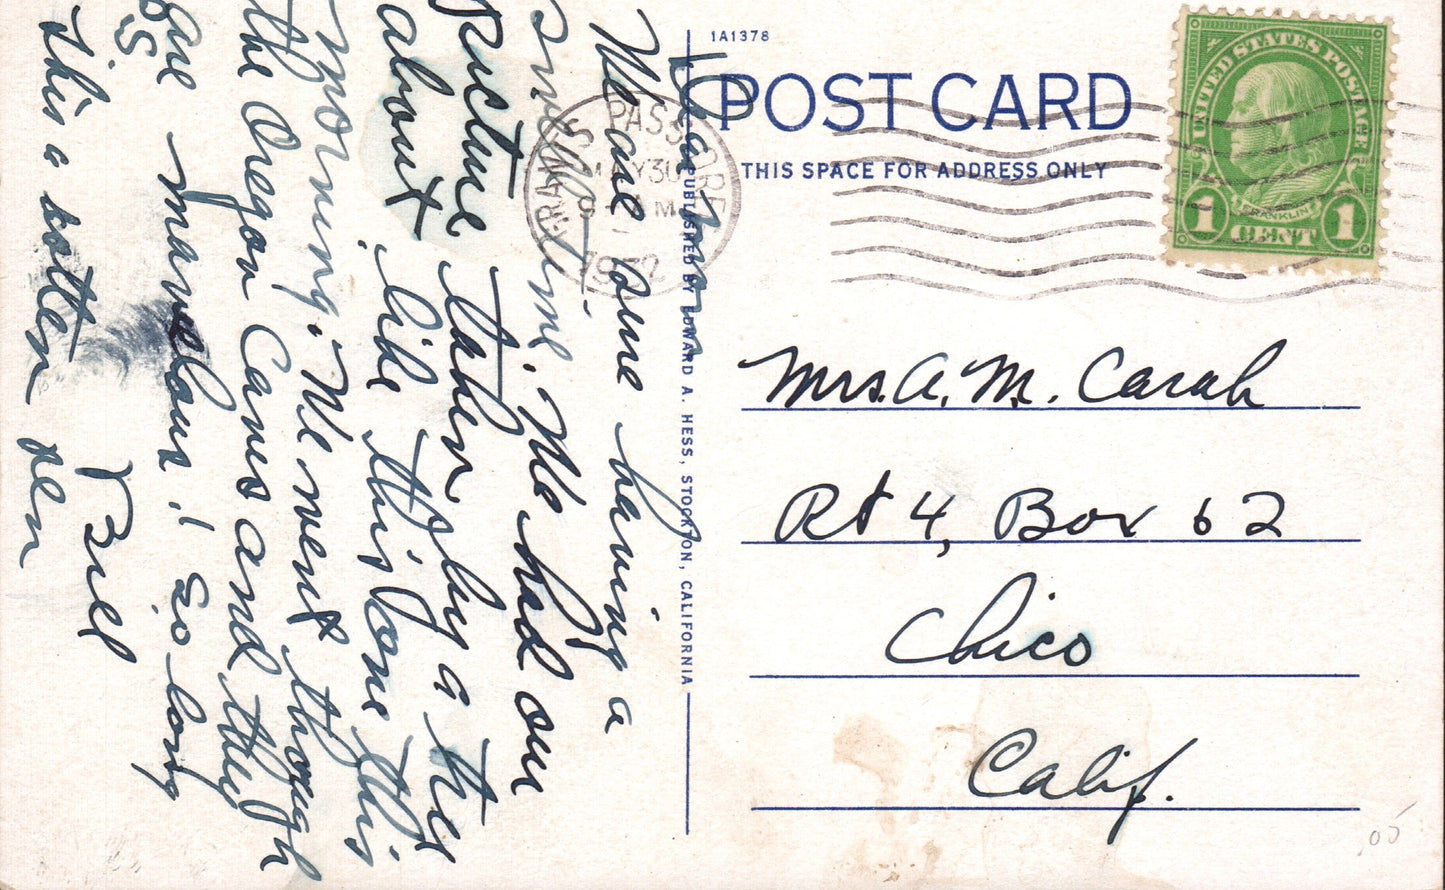 1A1378
POST CARD
THIS SPACE FOR ADDRESS ONLY
UNITED STATES POSTAGE
FRANKLIN
1 CENT 1
GRANTS PASS, ORE
MAY 30
9 M
1932
PUBLISHED BY EDWARD A. HESS, STOCKTON, CALIFORNIA
Mrs. A. M. Carah
Rt 4, Box 62
Chico
Calif.
Dear
We are having a
time. We had our
Picture taken by a tree
about like this one this
morning. We went through
the Oregon Caves and they
are marvelous! So long
Bill
P.S.
This a rotten pen
.05